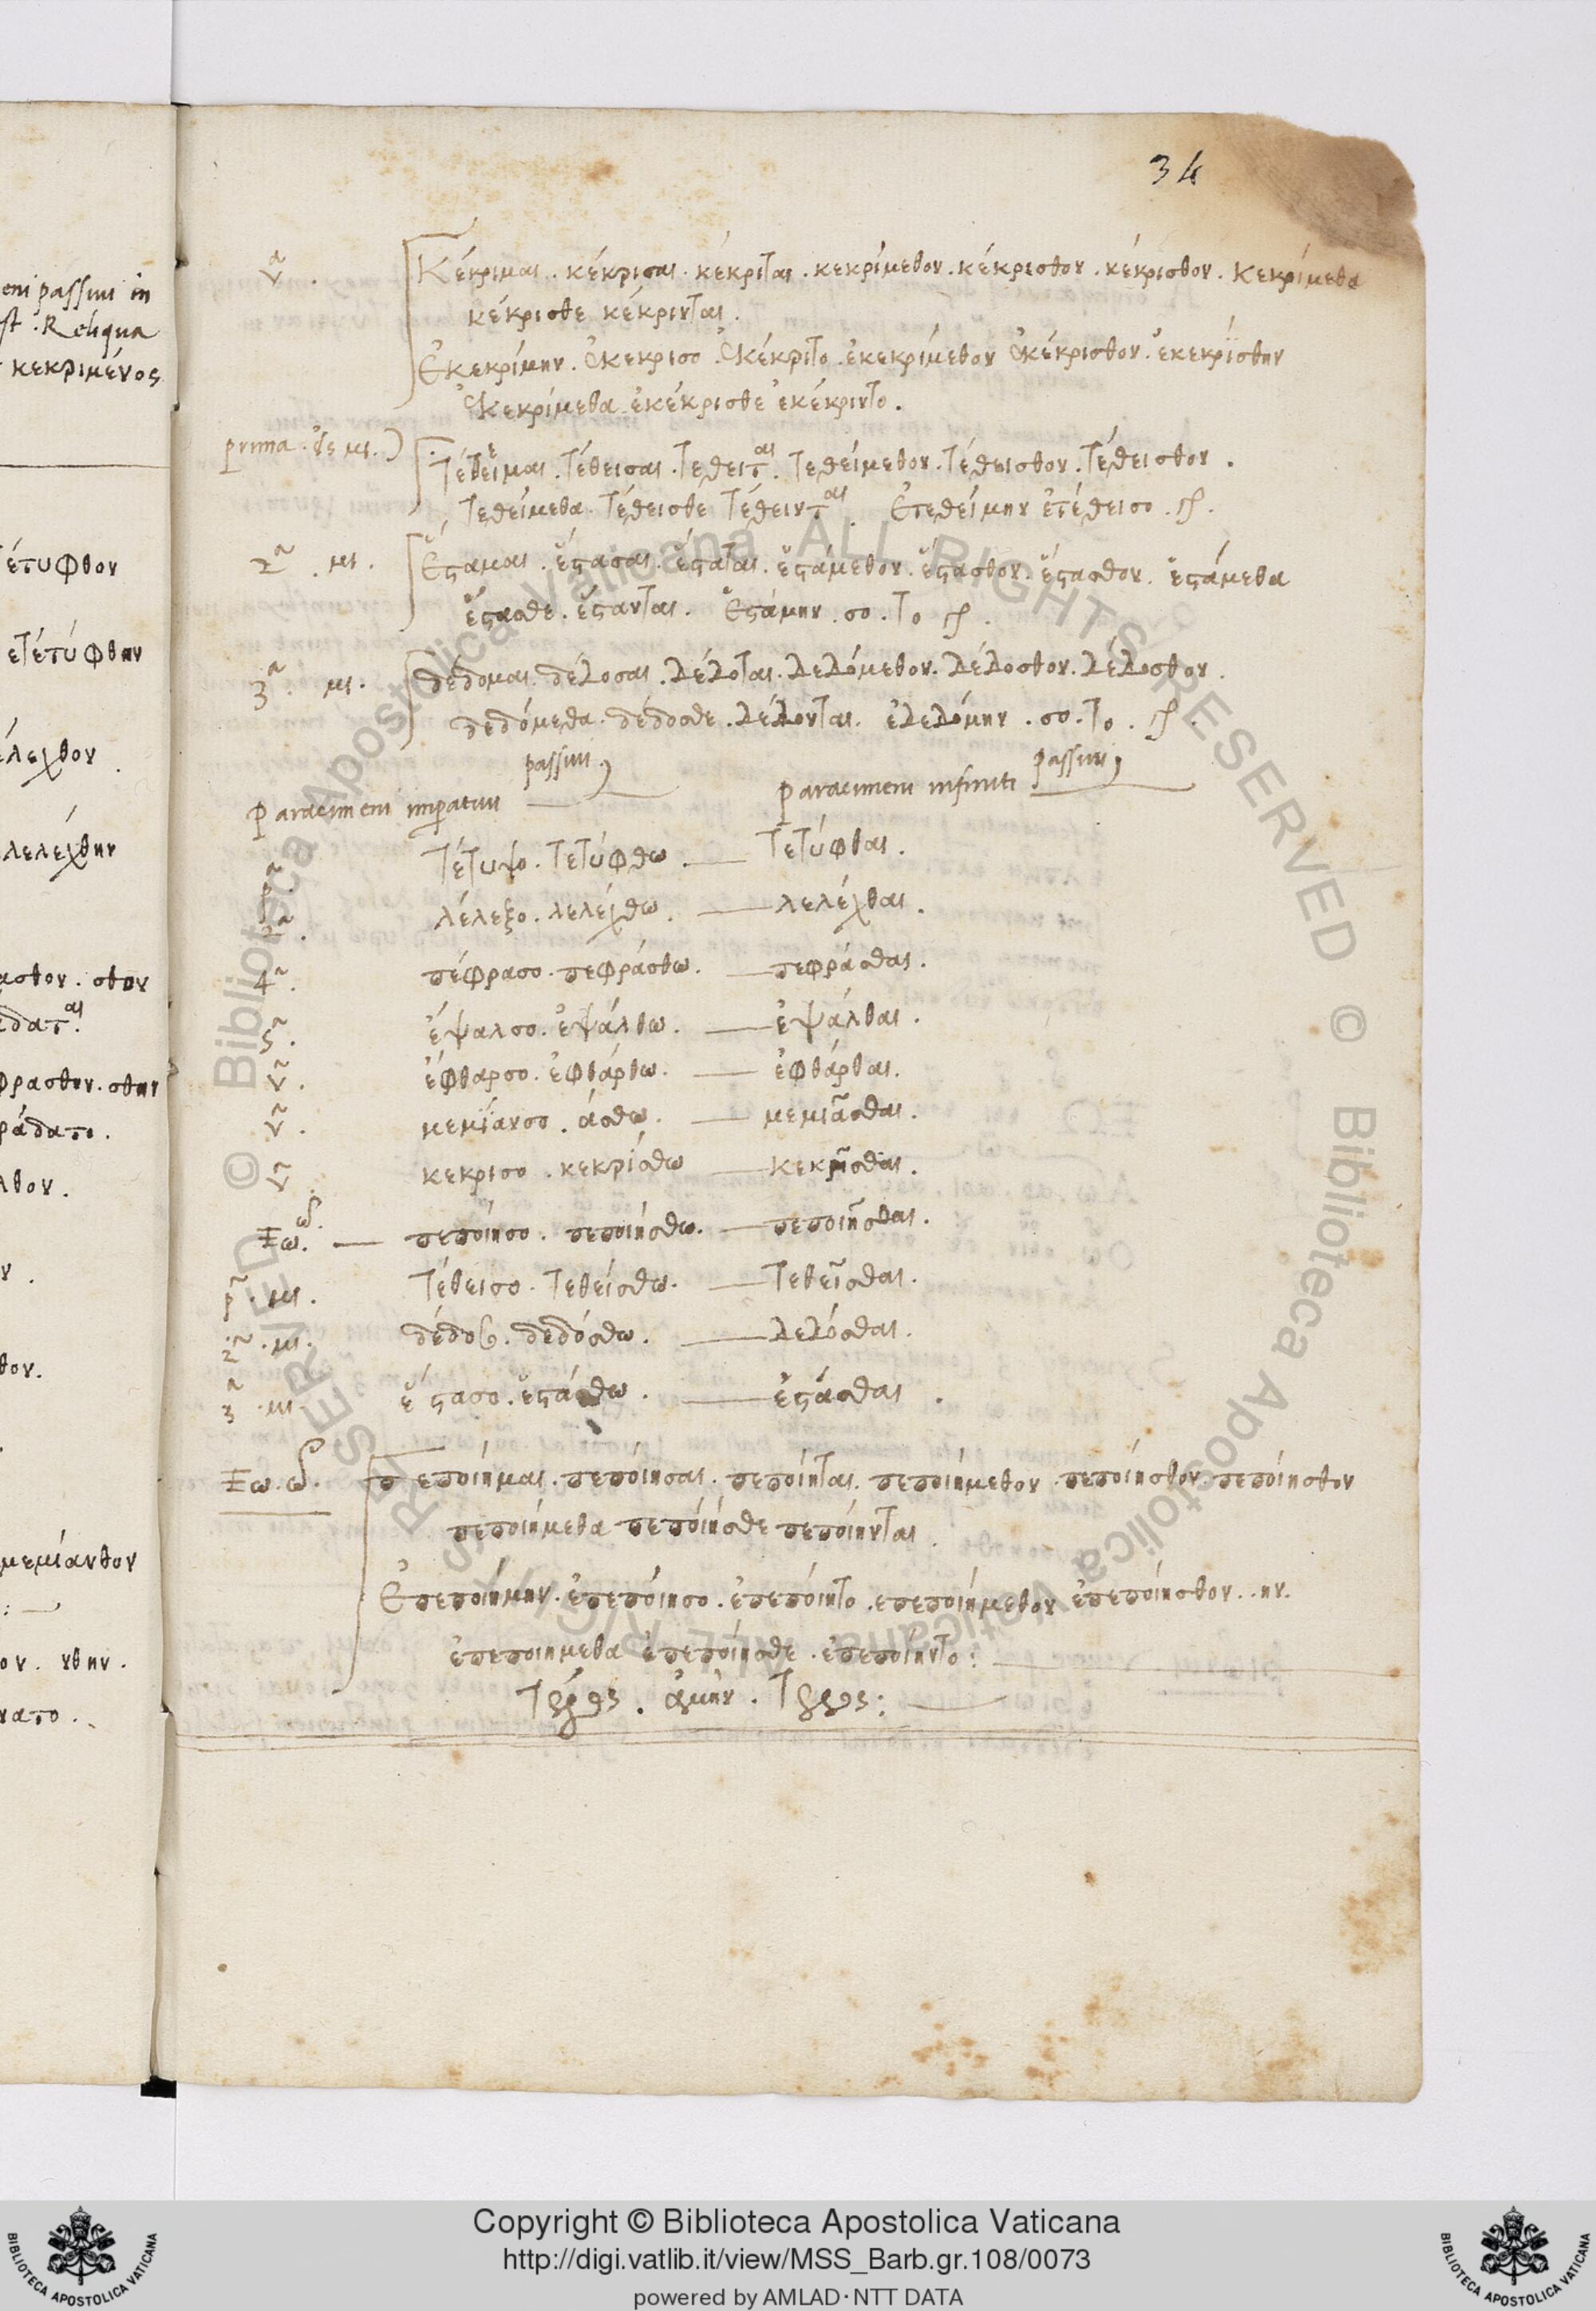 34
eni passivi in
st. Reliqua
κεκριμένος
έτυφθον
ετέτύφθην
έλεχθον
λελέχθην
ασθον. σθον
φρασθην. σθην
ράδατο.
λθον.
θον.
μεμίανθον
ον. νθην.
νατο.
Κέκριμαι. κέκρισαι. κέκριται. κεκρίμεθον. κέκρισθον. κέκρισθον. κεκρίμεθα
κέκρισθε κέκρινται.
Ἐκεκρίμην. ἐκεκρισο. ἐκέκριτο. ἐκεκρίμεθον ἐκέκρισθον. ἐκεκρίσθην
ἐκεκρίμεθα. ἐκέκρισθε ἐκέκριντο.
prima. εἰς μι.) Τέθειμαι. τέθεισαι. τεθειται. τεθείμεθον. τέθεισθον. τέθεισθον.
τεθείμεθα. τέθεισθε τέθεινται. Ἐτεθείμην ἐτέθεισο.
2ª. μι. Ἕσταμαι. ἕστασαι. ἕσταται. ἑστάμεθον. ἕστασθον. ἕστασθον. ἑστάμεθα
ἕστασθε. ἕστανται. Ἑστάμην. σο. το
3ª. μι. δέδομαι. δέδοσαι. δέδοται. δεδόμεθον. δέδοσθον. δέδοσθον.
δεδόμεθα. δέδοσθε. δέδονται. ἐδεδόμην. σο. το.
Paracimeni imperativi passivi Paracimeni infiniti passivi
τέτυψο. τετύφθω. — τετύφθαι.
2ª. λέλεξο. λελέχθω. — λελέχθαι.
4ª. πέφρασο. πεφράσθω. — πεφράσθαι.
5ª. έψαλσο. ἐψάλθω. — ἐψάλθαι.
v. έφθαρσο. ἐφθάρθω. — ἐφθάρθαι.
v. μεμίανσο. άσθω. — μεμιᾶσθαι.
v. κεκρισο. κεκρίσθω — κεκρῖσθαι.
πεποίησο. πεποιήσθω. — πεποιῆσθαι.
p. μι. τέθεισο. τεθείσθω. — τεθεῖσθαι.
2ª. μι. δέδοσο. δεδόσθω. — δεδόσθαι.
3ª. μι ἕστασο. ἑστάσθω. — ἑστάσθαι.
πεποίημαι. πεποίησαι. πεποίηται. πεποιήμεθον. πεποίησθον. πεποίησθον
πεποιήμεθα πεποίησθε πεποίηνται.
Ἐπεποιήμην. ἐπεποίησο. ἐπεποίητο. επεποιήμεθον ἐπεποίησθον.. ην.
ἐπεποιημεθα ἐπεποίησθε. ἐπεποίηντο: —
Τέλος. ἀμήν. Τέλος: —
© Biblioteca Apostolica Vaticana ALL RIGHTS RESERVED © Biblioteca Apostolica Vaticana ALL RIGHTS RESERVED
Copyright © Biblioteca Apostolica Vaticana
http://digi.vatlib.it/view/MSS_Barb.gr.108/0073
powered by AMLAD·NTT DATA
BIBLIOTECA APOSTOLICA VATICANA
BIBLIOTECA APOSTOLICA VATICANA